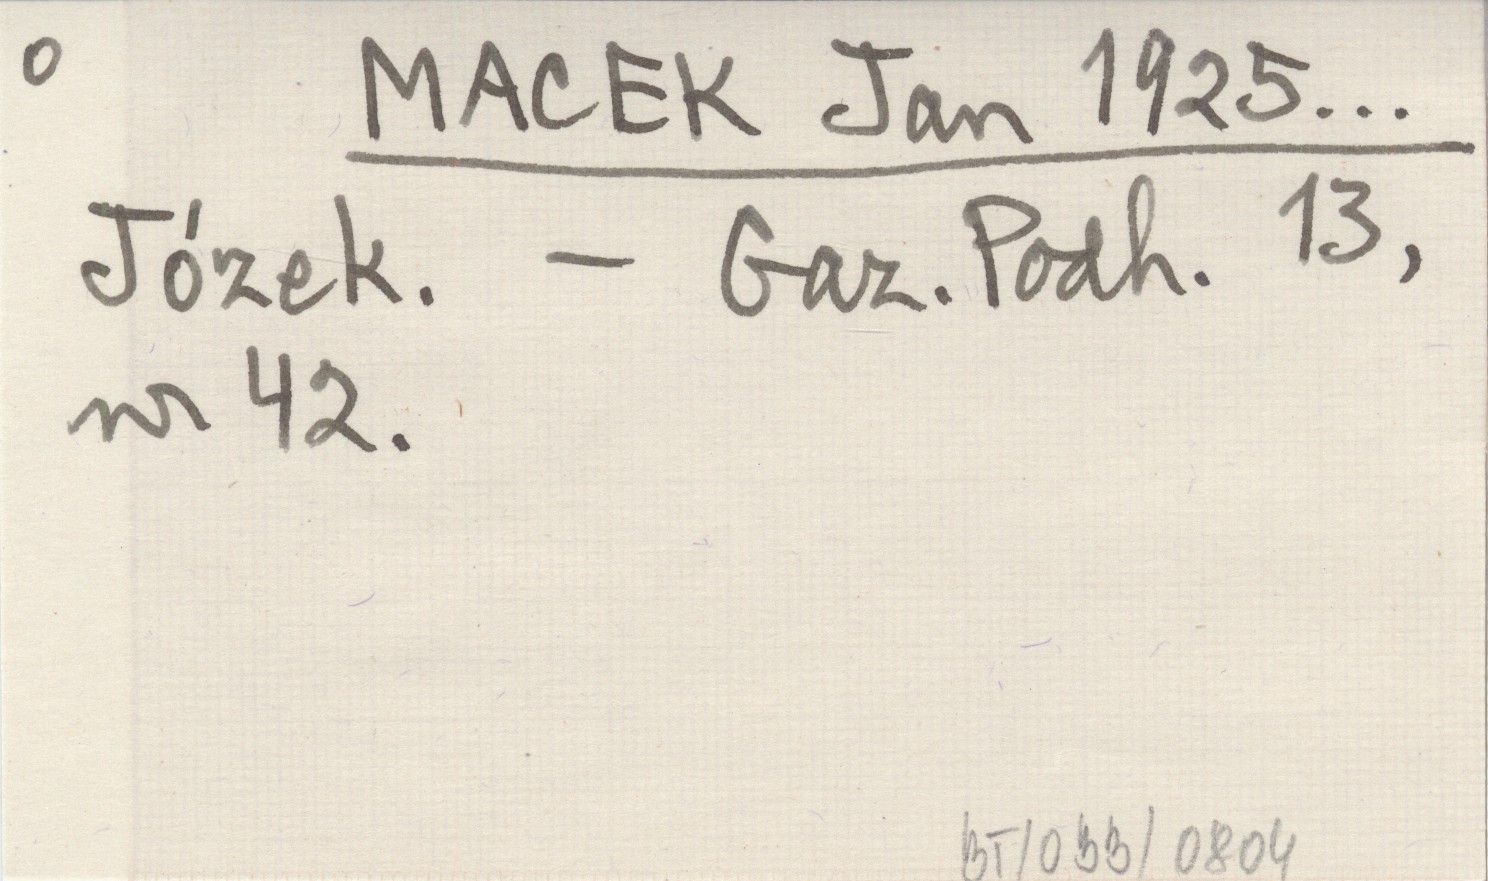 o MACEK Jan 1925...
Józek. — Gaz. Podh. 13,
nr 42.
BT/033/0804